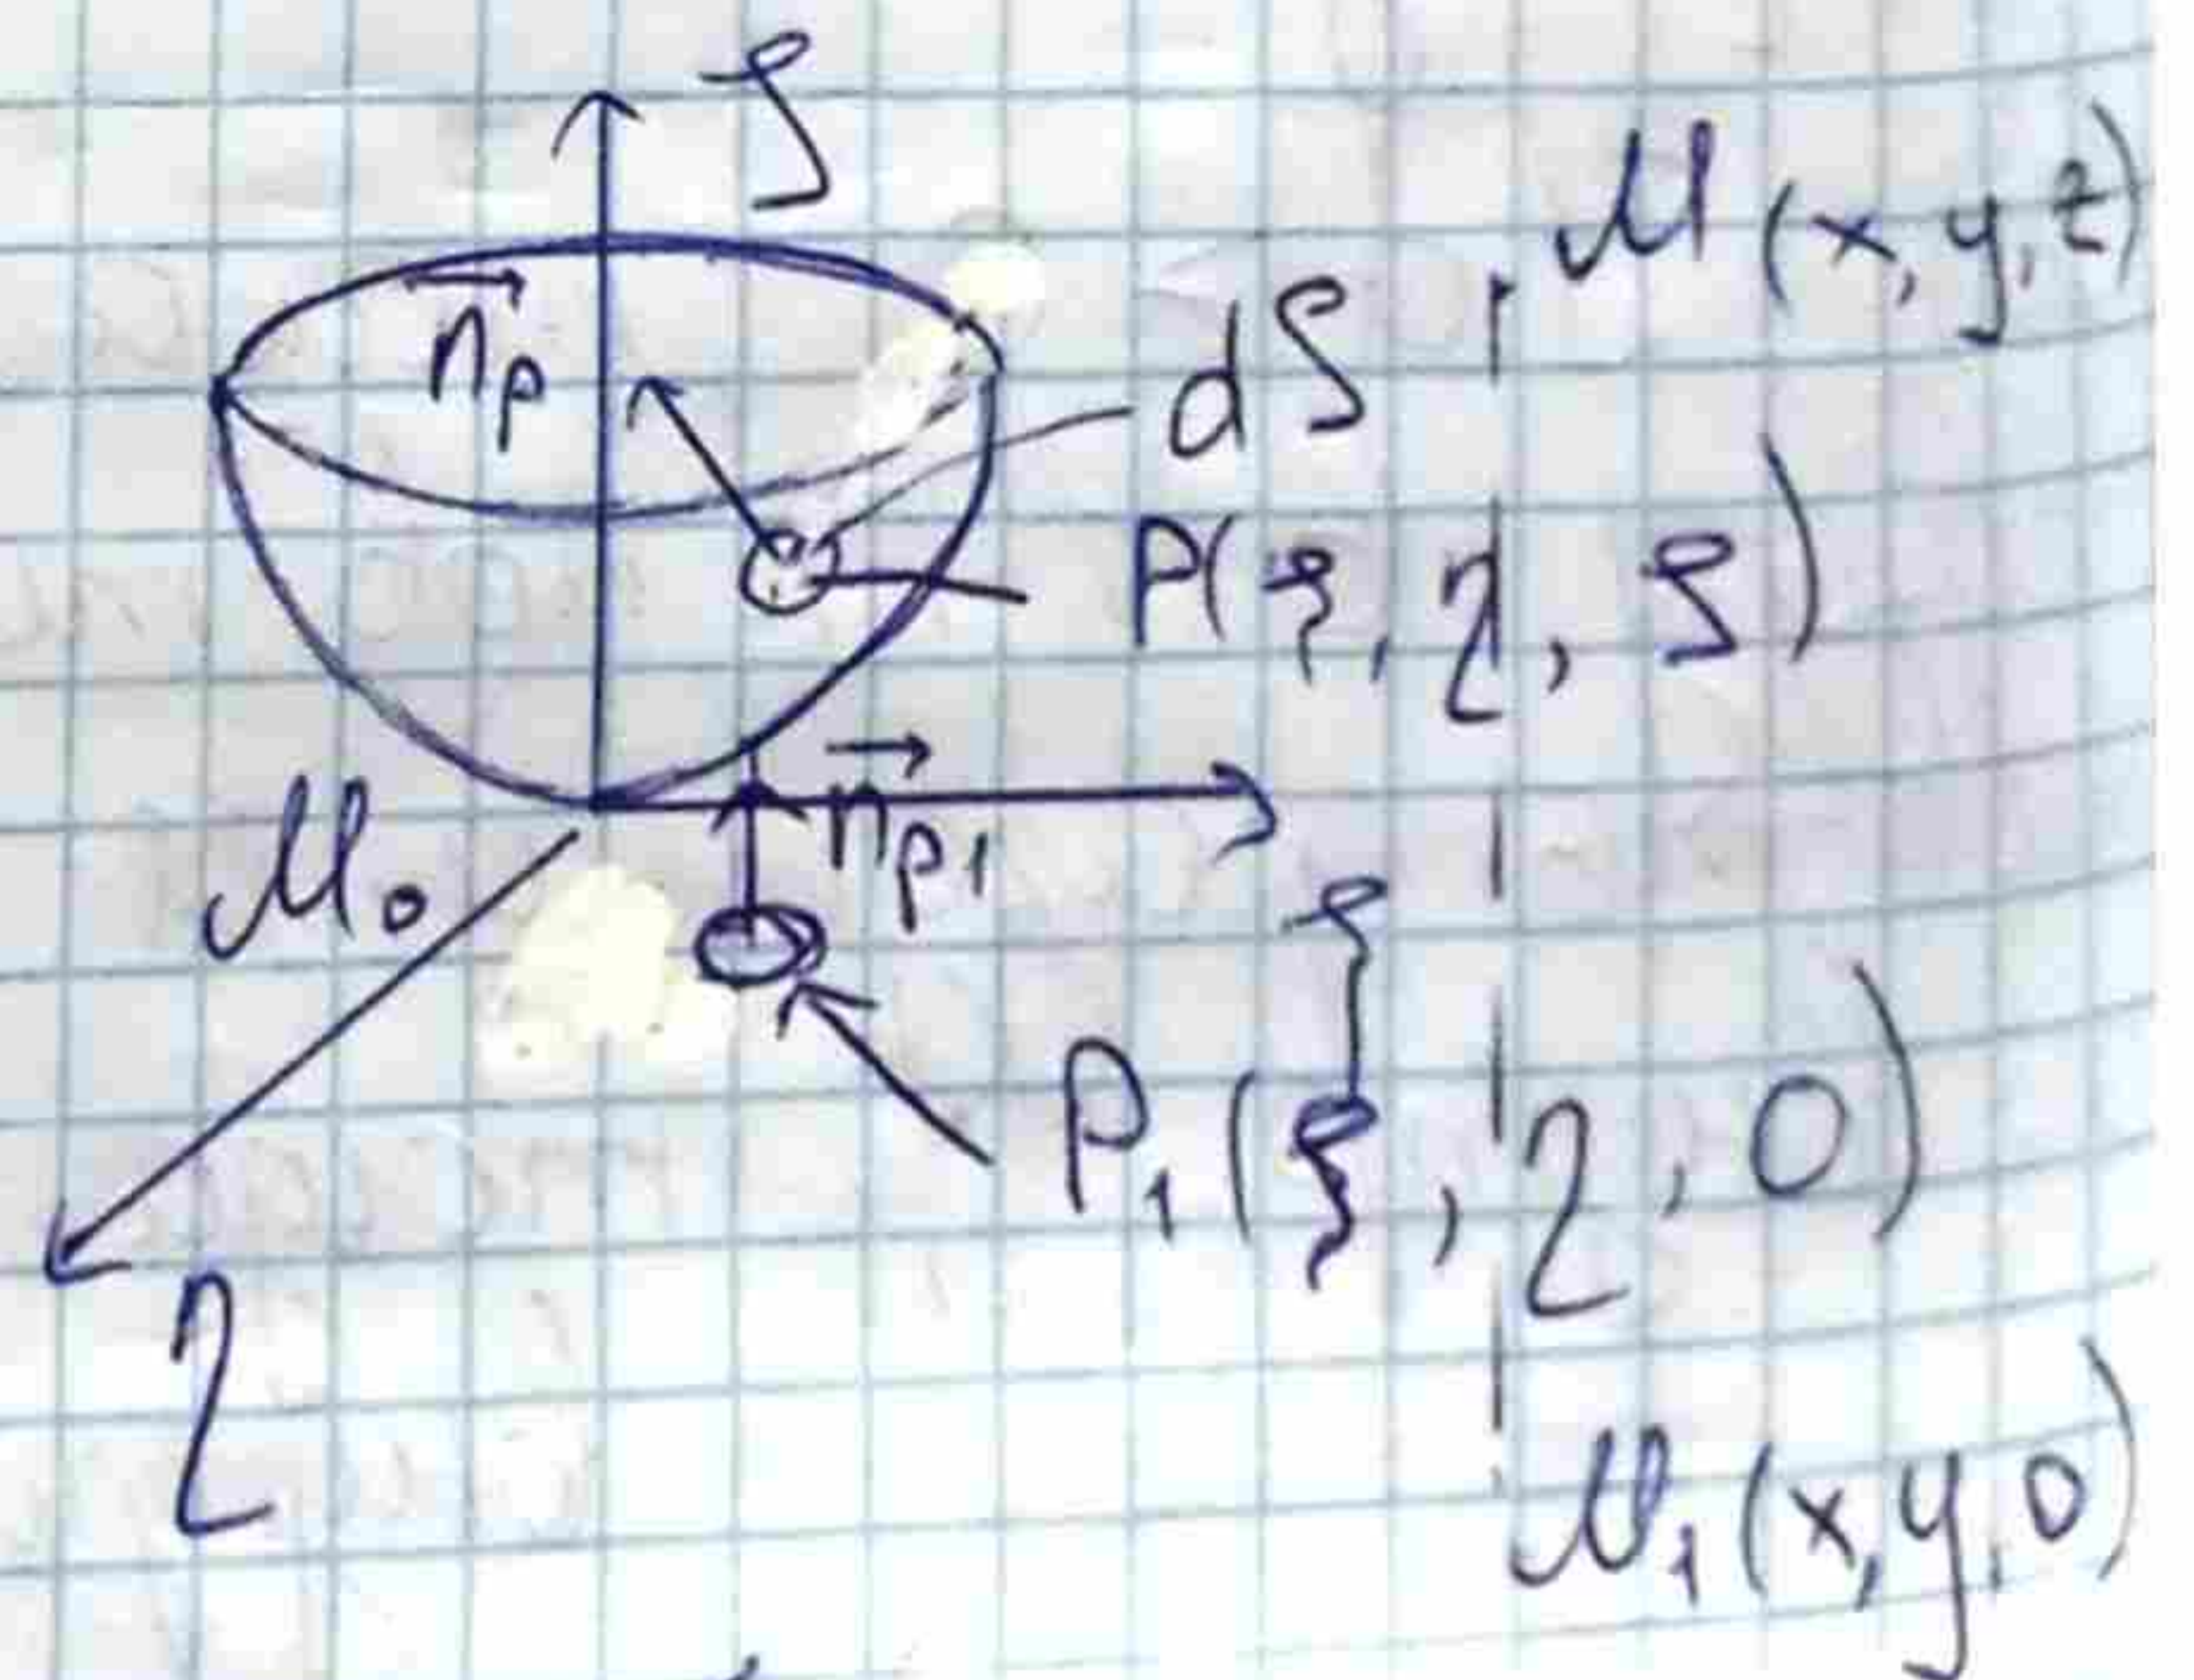 ζ
M(x, y, z)
n⃗p
dS
P(ξ, η, ζ)
M₀
n⃗p₁
ξ
P₁(ξ, η, 0)
η
M₁(x, y, 0)